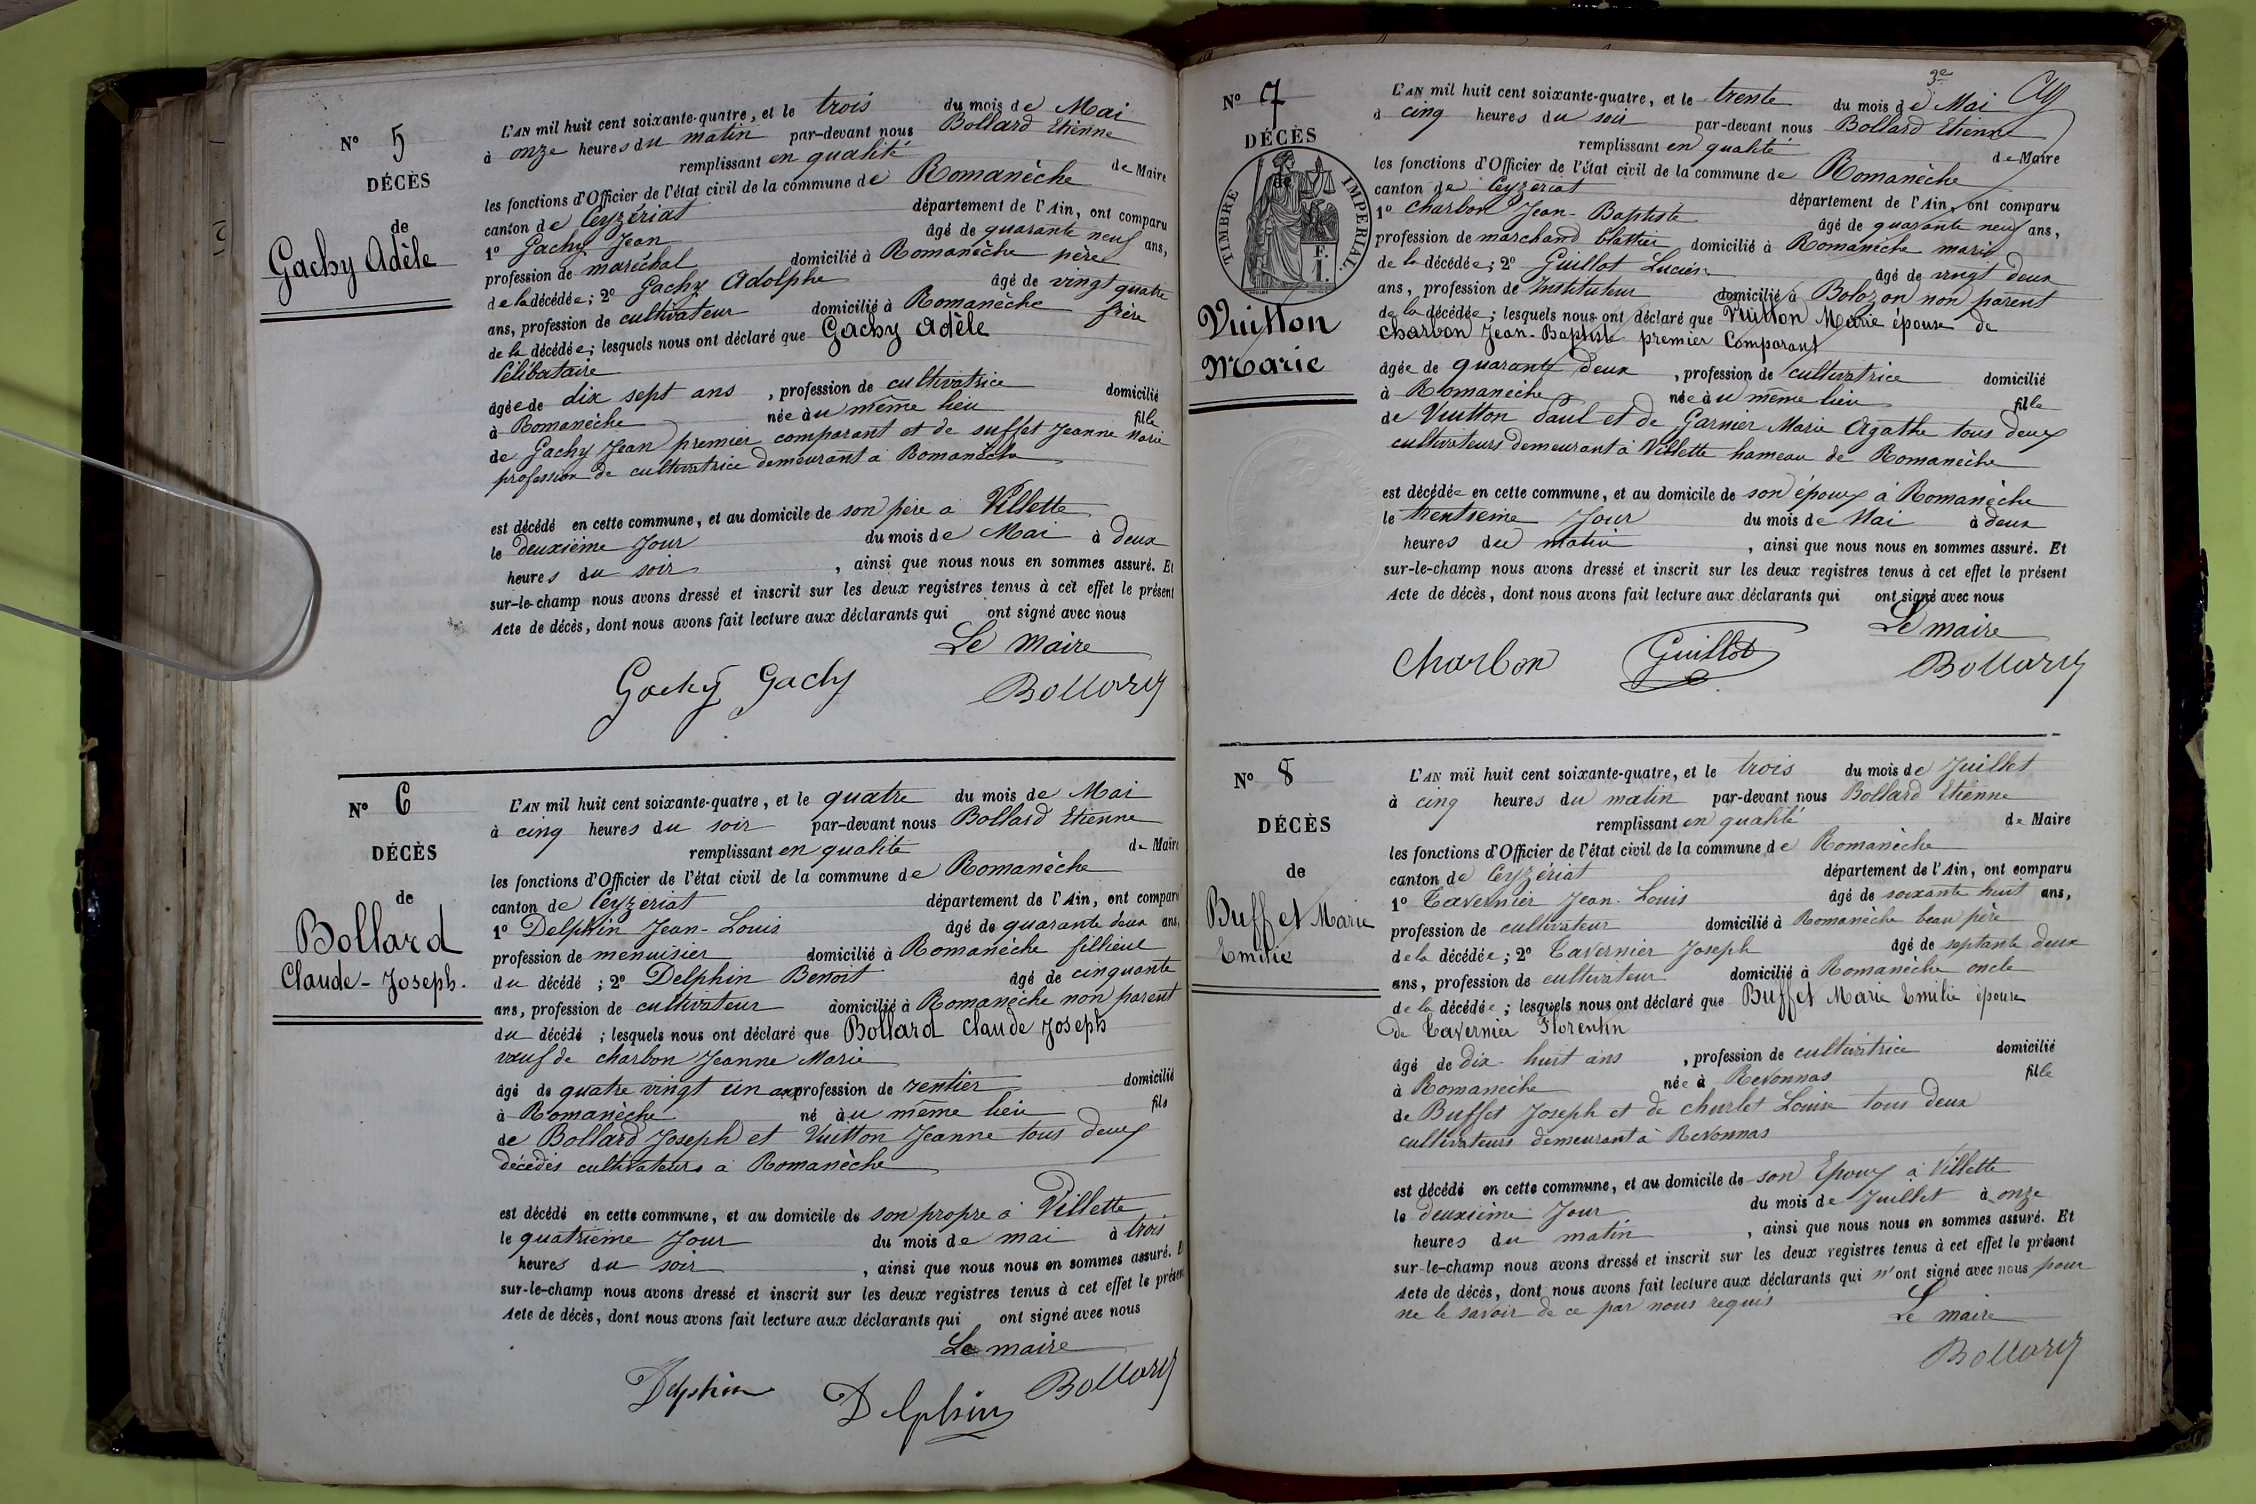 N° 5
DÉCÈS
de
Gachy Adèle
L'AN mil huit cent soixante-quatre, et le trois du mois de Mai
à onze heures du matin par-devant nous Bollard Etienne
remplissant en qualité de Maire
les fonctions d'Officier de l'état civil de la commune de Romanèche
canton de Ceyzériat département de l'Ain, ont comparu
1° Gachy Jean âgé de quarante neuf ans,
profession de maréchal domicilié à Romanèche père
de la décédée; 2° Gachy Adolphe âgé de vingt quatre
ans, profession de cultivateur domicilié à Romanèche frère
de la décédée; lesquels nous ont déclaré que Gachy Adèle
Célibataire
âgée de dix sept ans, profession de cultivatrice domicilié
à Romanèche née au même lieu fille
de Gachy Jean premier comparant et de suffet Jeanne Marie
profession de cultivatrice demeurant à Romanèche
est décédé en cette commune, et au domicile de son père à Villette
le deuxième Jour du mois de Mai à deux
heures du soir, ainsi que nous nous en sommes assuré. Et
sur-le-champ nous avons dressé et inscrit sur les deux registres tenus à cet effet le présent
Acte de décès, dont nous avons fait lecture aux déclarants qui ont signé avec nous
Le Maire
Gachy Gachy Bollard
N° 6
DÉCÈS
de
Bollard
Claude-Joseph.
L'AN mil huit cent soixante-quatre, et le quatre du mois de Mai
à cinq heures du soir par-devant nous Bollard Etienne
remplissant en qualité de Maire
les fonctions d'Officier de l'état civil de la commune de Romanèche
canton de Ceyzériat département de l'Ain, ont comparu
1° Delphin Jean-Louis âgé de quarante deux ans,
profession de menuisier domicilié à Romanèche fillieul
du décédé; 2° Delphin Benoit âgé de cinquante
ans, profession de cultivateur domicilié à Romanèche non parent
du décédé; lesquels nous ont déclaré que Bollard Claude Joseph
vœuf de charbon Jeanne Marie
âgé de quatre vingt un ans profession de rentier domicilié
à Romanèche né au même lieu fils
de Bollard Joseph et Vuitton Jeanne tous deux
décédés cultivateurs à Romanèche
est décédé en cette commune, et au domicile de son propre à Villette
le quatrième Jour du mois de mai à trois
heures du soir, ainsi que nous nous en sommes assuré. E
sur-le-champ nous avons dressé et inscrit sur les deux registres tenus à cet effet le présen
Acte de décès, dont nous avons fait lecture aux déclarants qui ont signé avec nous
Le maire
Delphin Delphin Bollard
3e
N° 7
DÉCÈS
de
TIMBRE IMPÉRIAL.
Vuitton
Marie
L'AN mil huit cent soixante-quatre, et le trente du mois de Mai
à cinq heures du soir par-devant nous Bollard Etienne
remplissant en qualité de Maire
les fonctions d'Officier de l'état civil de la commune de Romanèche
canton de Ceyzériat département de l'Ain, ont comparu
1° Charbon Jean-Baptiste âgé de quarante neuf ans,
profession de marchand blattier domicilié à Romanèche mari
de la décédée; 2° Guillot Lucien âgé de vingt deux
ans, profession de Instituteur domicilié à Bolozon non parent
de la décédée; lesquels nous ont déclaré que Vuitton Marie épouse de
charbon Jean-Baptiste premier Comparant
âgée de quarante deux, profession de cultivatrice domicilié
à Romanèche née au même lieu fille
de Vuitton Paul et de Garnier Marie Agathe tous deux
cultivateurs demeurant à Villette hameau de Romanèche
est décédée en cette commune, et au domicile de son époux à Romanèche
le trentième Jour du mois de Mai à deux
heures du matin, ainsi que nous nous en sommes assuré. Et
sur-le-champ nous avons dressé et inscrit sur les deux registres tenus à cet effet le présent
Acte de décès, dont nous avons fait lecture aux déclarants qui ont signé avec nous
Le maire
Charbon Guillot Bollard
N° 8
DÉCÈS
de
Buffet Marie
Emilie
L'AN mil huit cent soixante-quatre, et le trois du mois de Juillet
à cinq heures du matin par-devant nous Bollard Etienne
remplissant en qualité de Maire
les fonctions d'Officier de l'état civil de la commune de Romanèche
canton de Ceyzériat département de l'Ain, ont comparu
1° Tavernier Jean-Louis âgé de soixante huit ans,
profession de cultivateur domicilié à Romanèche beau père
de la décédée; 2° Tavernier Joseph âgé de septante deux
ans, profession de cultivateur domicilié à Romanèche oncle
de la décédée; lesquels nous ont déclaré que Buffet Marie Emilie épouse
de Tavernier Florentin
âgé de dix-huit ans, profession de cultivatrice domicilié
à Romanèche née à Revonnas fille
de Buffet Joseph et de churlet Louise tous deux
cultivateurs demeurant à Revonnas
est décédé en cette commune, et au domicile de son Epoux à Villette
le deuxième Jour du mois de Juillet à onze
heures du matin, ainsi que nous nous en sommes assuré. Et
sur-le-champ nous avons dressé et inscrit sur les deux registres tenus à cet effet le présent
Acte de décès, dont nous avons fait lecture aux déclarants qui n'ont signé avec nous pour
ne le savoir de ce par nous requis
Le maire
Bollard